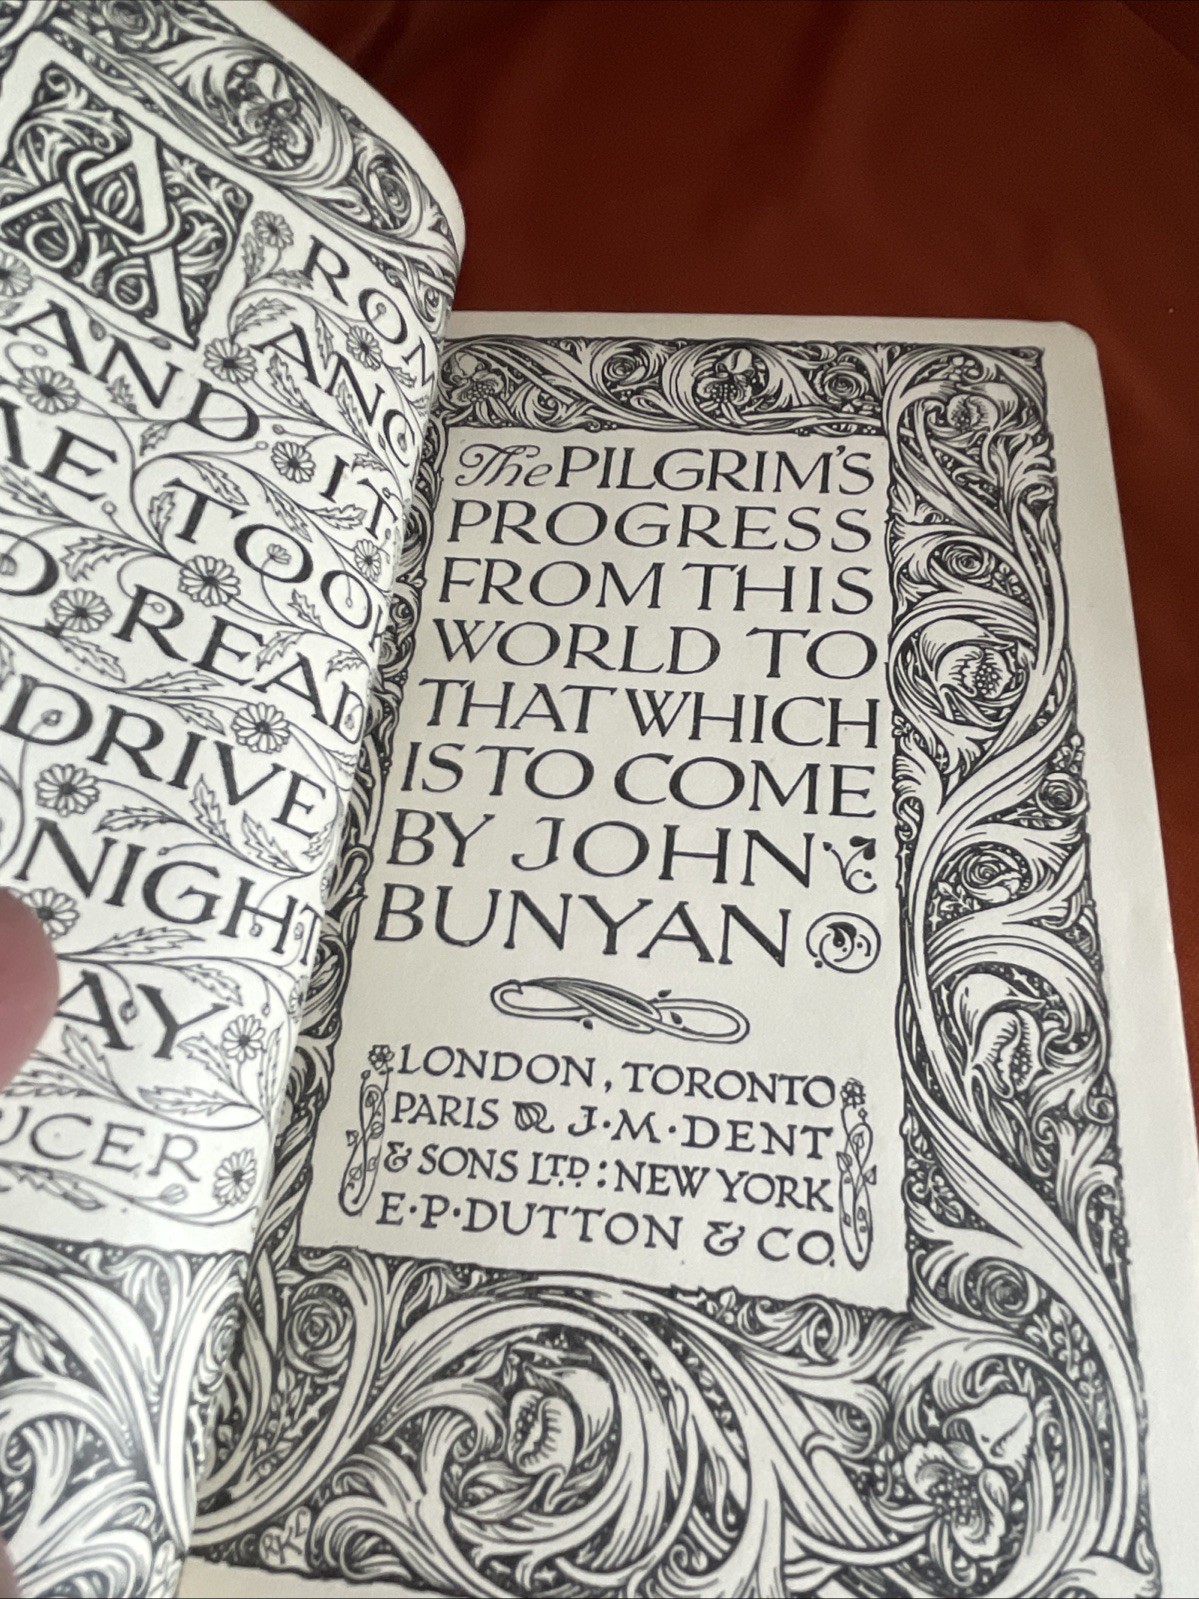 A
RON
AND
IT
ANO
TOOK
READ
DRIVE
NIGHT
AY
UCER
The PILGRIM'S
PROGRESS
FROM THIS
WORLD TO
THAT WHICH
IS TO COME
BY JOHN
BUNYAN
LONDON, TORONTO
PARIS & J·M·DENT
& SONS LTD: NEW YORK
E·P·DUTTON & CO.
RLK